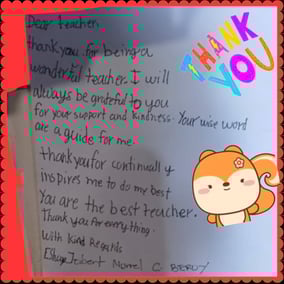 Dear teacher,
thank you for being a
wonderful teacher. I will
always be grateful to you
for your support and kindness. Your wise word
are a guide for me.
thank you for continually
inspires me to do my best
You are the best teacher.
Thank you for everything.
With Kind Regards
THANK
YOU